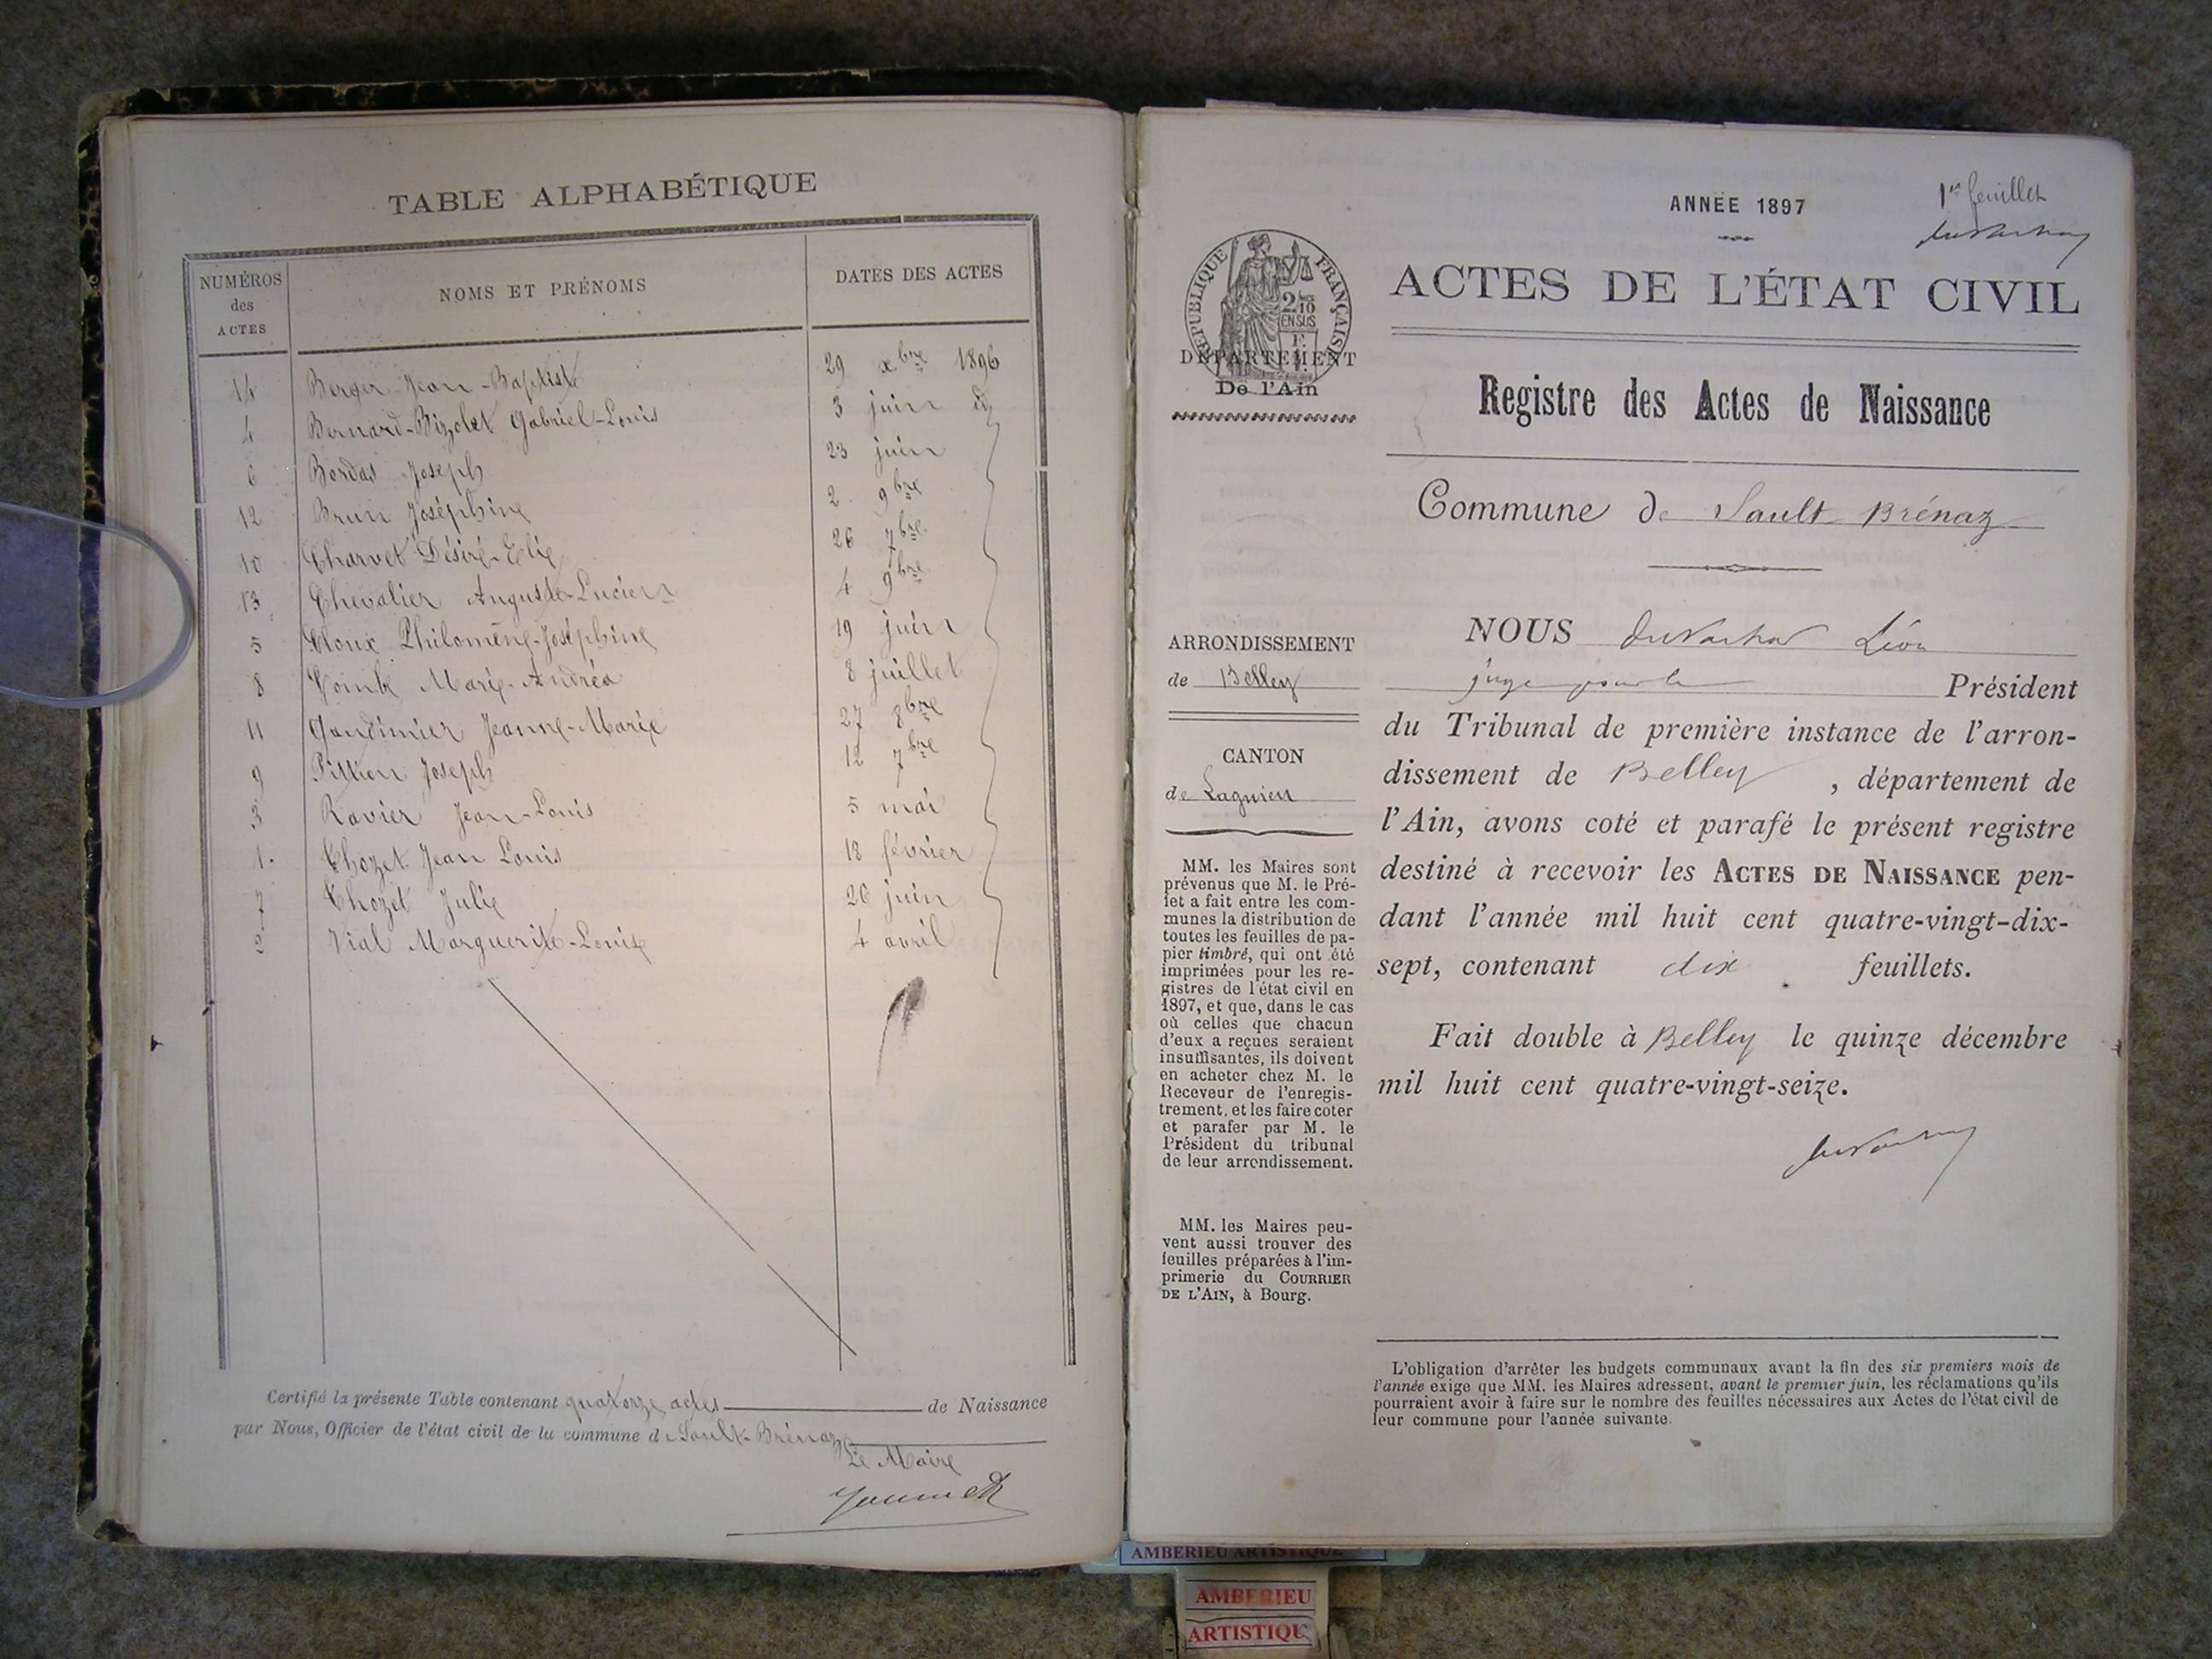 TABLE ALPHABÉTIQUE
NUMÉROS des ACTES NOMS ET PRÉNOMS DATES DES ACTES
14 Berger Jean-Baptiste 29 xbre 1896
4 Bernard-Bizolet Gabriel-Louis 3 juin id
6 Bordas Joseph 23 juin
12 Brun Joséphine 2 9bre
10 Charvet Désiré-Elie 26 7bre
13 Chevalier Auguste-Lucien 4 9bre
5 Cloux Philomène-Joséphine 19 juin
8 Combe Marie-Andréa 8 juillet
11 Gaudimier Jeanne-Marie 27 8bre
9 Joseph 12 7bre
3 Ravier Jean-Louis 5 mai
1. Thozet Jean Louis 18 février
7 Thozet Julie 26 juin
2 Vial Marguerite-Louise 4 avril
Certifié la présente Table contenant quatorze actes de Naissance
par Nous, Officier de l'état civil de la commune de Sault-Brénaz
Le Maire
ANNÉE 1897
1er feuillet
ACTES DE L'ÉTAT CIVIL
RÉPUBLIQUE FRANÇAISE
2/10
EN SUS
DÉPARTEMENT
De l'Ain
Registre des Actes de Naissance
Commune de Sault Brénaz
ARRONDISSEMENT
de Belley
CANTON
de Lagnieu
MM. les Maires sont
prévenus que M. le Pré-
fet a fait entre les com-
munes la distribution de
toutes les feuilles de pa-
pier timbré, qui ont été
imprimées pour les re-
gistres de l'état civil en
1897, et que, dans le cas
où celles que chacun
d'eux a reçues seraient
insuffisantes, ils doivent
en acheter chez M. le
Receveur de l'enregis-
trement, et les faire coter
et parafer par M. le
Président du tribunal
de leur arrondissement.
MM. les Maires peu-
vent aussi trouver des
feuilles préparées à l'im-
primerie du COURRIER
DE L'AIN, à Bourg.
NOUS Léon
juge pour le Président
du Tribunal de première instance de l'arron-
dissement de Belley, département de
l'Ain, avons coté et parafé le présent registre
destiné à recevoir les ACTES DE NAISSANCE pen-
dant l'année mil huit cent quatre-vingt-dix-
sept, contenant dix feuillets.
Fait double à Belley le quinze décembre
mil huit cent quatre-vingt-seize.
L'obligation d'arrêter les budgets communaux avant la fin des six premiers mois de
l'année exige que MM. les Maires adressent, avant le premier juin, les réclamations qu'ils
pourraient avoir à faire sur le nombre des feuilles nécessaires aux Actes de l'état civil de
leur commune pour l'année suivante.
AMBERIEU ARTISTIQUE
AMBERIEU
ARTISTIQU